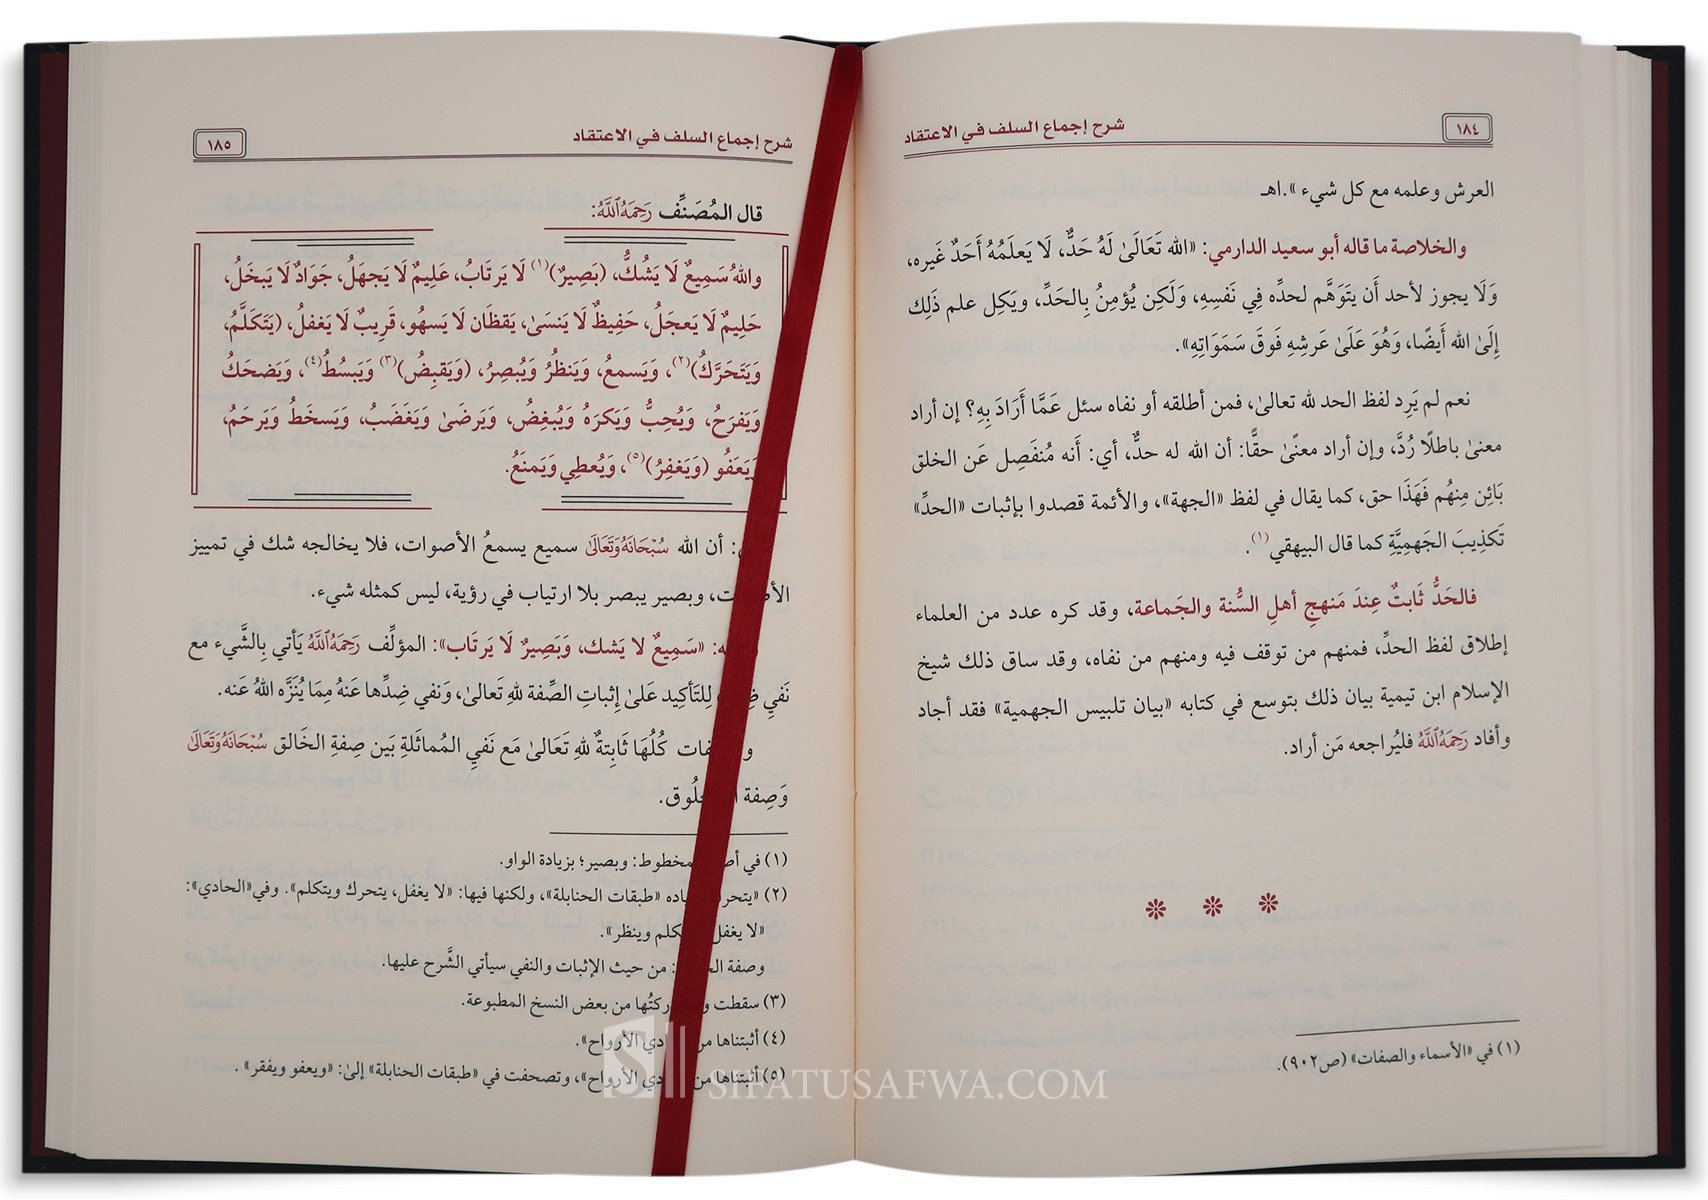 ١٨٤
شرح إجماع السلف في الاعتقاد
العرش وعلمه مع كل شيء».اهـ
والخلاصة ما قاله أبو سعيد الدارمي: «الله تَعَالَىٰ لَهُ حَدٌّ، لَا يَعلَمُهُ أَحَدٌ غَيره،
وَلَا يجوز لأحد أَن يتَوَهَّم لحدِّه فِي نَفسِهِ، وَلَكِن يُؤمِنُ بِالحَدِّ، ويَكِل علم ذَلِك
إِلَىٰ الله أَيضًا، وَهُوَ عَلَىٰ عَرشِهِ فَوقَ سَمَوَاتِهِ».
نعم لم يَرِد لفظ الحد لله تعالىٰ، فمن أطلقه أو نفاه سئل عَمَّا أَرَادَ بِهِ؟ إن أراد
معنىٰ باطلًا رُدَّ، وإن أراد معنًىٰ حقًّا: أن الله له حدٌّ، أي: أَنه مُنفَصِل عَن الخلق
بَائِن مِنهُم فَهَذَا حق، كما يقال في لفظ «الجهة»، والأئمة قصدوا بإثبات «الحدِّ»
تَكذِيبَ الجَهمِيَّةِ كما قال البيهقي(١).
فالحَدُّ ثَابتٌ عِندَ مَنهجِ أهلِ السُّنة والجَماعة، وقد كره عدد من العلماء
إطلاق لفظ الحدِّ، فمنهم من توقف فيه ومنهم من نفاه، وقد ساق ذلك شيخ
الإسلام ابن تيمية بيان ذلك بتوسع في كتابه «بيان تلبيس الجهمية» فقد أجاد
وأفاد رَحِمَهُ اللَّهُ فليُراجعه مَن أراد.
(١) في «الأسماء والصفات» (ص٩٠٢).
شرح إجماع السلف في الاعتقاد
١٨٥
قال المُصَنِّف رَحِمَهُ اللَّهُ:
واللهُ سَمِيعٌ لَا يَشُكُّ، (بَصِيرٌ)(١) لَا يَرتَابُ، عَلِيمٌ لَا يَجهَلُ، جَوَادٌ لَا يَبخَلُ،
حَلِيمٌ لَا يَعجَلُ، حَفِيظٌ لَا يَنسَىٰ، يَقظَان لَا يَسهُو، قَرِيبٌ لَا يَغفلُ، (يَتَكَلَّمُ،
وَيَتَحَرَّكُ)(٢)، وَيَسمعُ، وَيَنظرُ وَيُبصِرُ، (وَيَقبِضُ)(٣) وَيَبسُطُ(٤)، وَيَضحَكُ
وَيَفرَحُ، وَيُحِبُّ وَيَكرَهُ وَيُبغِضُ، وَيَرضَىٰ وَيَغضَبُ، وَيَسخَطُ وَيَرحَمُ،
وَيَعَفُو (وَيَغفِرُ)(٥)، وَيُعطِي وَيَمنَعُ.
أن الله سُبْحَانَهُ وَتَعَالَىٰ سميع يسمعُ الأصوات، فلا يخالجه شك في تمييز
وبصير يبصر بلا ارتياب في رؤية، ليس كمثله شيء.
«سَمِيعٌ لا يَشك، وَبَصِيرٌ لَا يَرتَاب»: المؤلِّف رَحِمَهُ اللَّهُ يَأتي بِالشَّيء مع
نَفيِ لِلتَّأكِيد عَلىٰ إِثباتِ الصِّفة للهِ تَعالىٰ، وَنفي ضِدِّها عَنهُ مِمَا يُنَزَّه اللهُ عَنه.
كُلُهَا ثَابتةٌ للهِ تَعالىٰ مَع نَفيِ المُماثَلةِ بَين صِفةِ الخَالق سُبْحَانَهُ وَتَعَالَىٰ
وَصِفة
(١) في مخطوط: وبصير؛ بزيادة الواو.
(٢) «طبقات الحنابلة»، ولكنها فيها: «لا يغفل، يتحرك ويتكلم». وفي«الحادي»:
«لا يغفل وينظر».
وصفة من حيث الإثبات والنفي سيأتي الشَّرح عليها.
(٣) سقطت من بعض النسخ المطبوعة.
(٤) أثبتناها الأرواح».
(٥) أثبتناها الأرواح»، وتصحفت في «طبقات الحنابلة» إلىٰ: «ويعفو ويفقر».
SIFATUSAFWA.COM